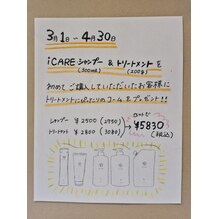 3月1日 〜 4月30日
iCARE シャンプー & トリートメントを
(300ml) (200g)
初めてご購入していただいたお客様に
トリートメントにぴったりのコームをプレゼント!!
シャンプー ¥2500 (2750)
トリートメント ¥2800 (3080)
セットで
¥5830
(税込)